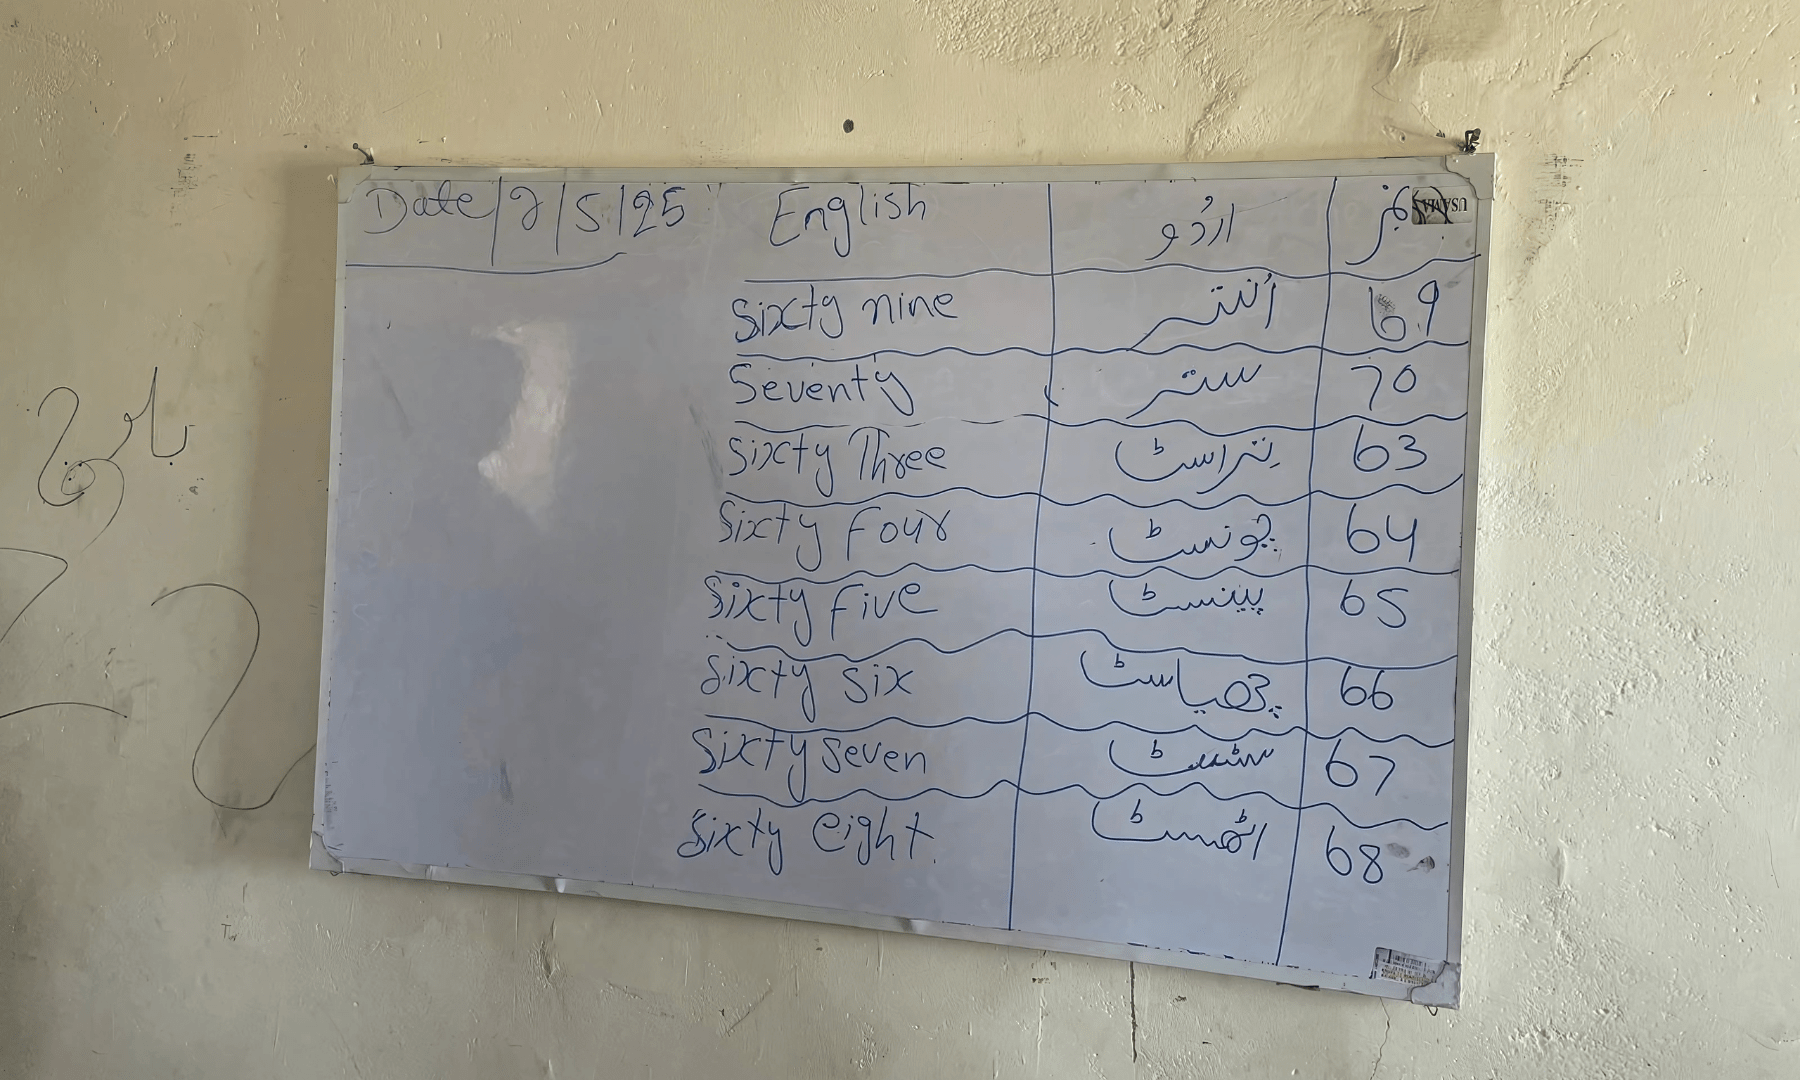 Date/2/5/25 English اُردُو نمبر
Sixty nine اُنتر 69
Seventy ستر 70
Sixty Three تِراسٹ 63
Sixty Four چونسٹ 64
Sixty Five پینسٹ 65
Sixty Six چھیاسٹ 66
Sixty Seven سٹسٹ 67
Sixty eight. اٹھسٹ 68
USAMA